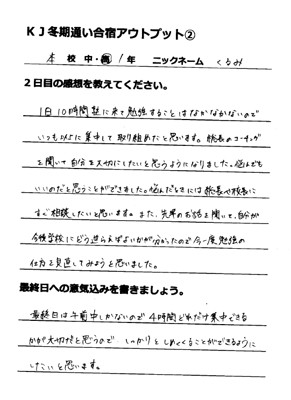 KJ冬期通い合宿アウトプット②
本 校 中・高 / 1年 ニックネーム くるみ
2日目の感想を教えてください。
1日10時間塾に来て勉強することはなかなかないので
いつも以上に集中して取り組めたと思います。総長のコーチング
を聞いて自分を大切にしたいと思うようになりました。悩んでも
いいのだと思うことができました。悩んだときには総長や校長に
すぐ相談したいと思います。また、先輩のお話を聞いて、自分が
今後学校にどう進らえばよいかが分かったので今一度勉強の
仕方を見直してみようと思いました。
最終日への意気込みを書きましょう。
最終日は午前中しかないので4時間どれだけ集中できる
かが大切だと思うので しっかりとしめくくることができるように
したいと思います。